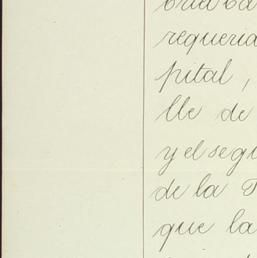 requeria
pital,
lle de
y el segu
de la
que la